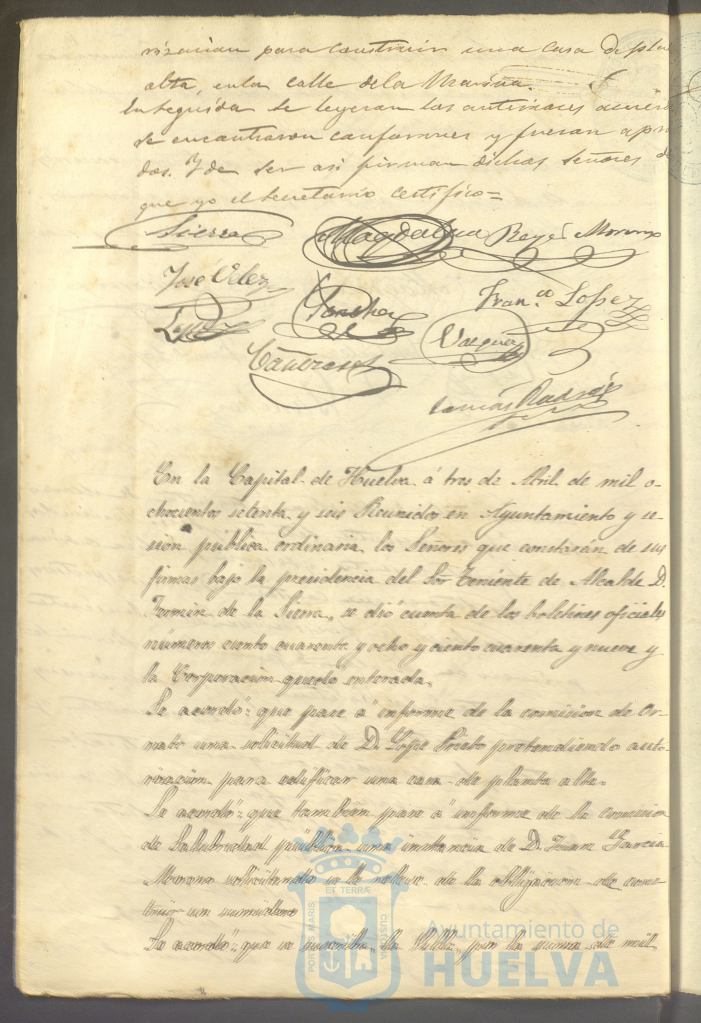 rizacion para construir una casa de pla
alta, en la calle de la Marina.
Enseguida se leyeron las anteriores acuer
se encontraron conformes y fueron apro
dos. Y de ser asi firman dichos Señores de
que yo el Secretario certifico=
Sierra Magdalena Reyes Moreno
José Velez Sanchez Fran.co Lopez
Lopez Vazquez
Contreras
Tomás
En la Capital de Huelva á tres de Abril de mil o-
chocientos setenta y seis Reunidos en Ayuntamiento y se-
sion pública ordinaria los Señores que constarán de sus
firmas bajo la presidencia del Sor Teniente de Alcalde D.
Fermin de la Sierra, se dió cuenta de los boletines oficiales
números ciento cuarenta y ocho y ciento cuarenta y nueve y
la Corporacion quedó enterada.
Se acordó: que pase a informe de la comision de Or-
nato una solicitud de D. Lope Prieto pretendiendo auto-
rizacion para edificar una casa de planta alta.
Se acordó: que tambien pase a informe de la comision
de Salubridad pública una instancia de D. Juan Garcia
Moreno solicitando se le releve de la obligacion de cons-
truir un
Se acordó: que se la por la suma de mil
PORTUS MARIS ET TERRÆ CUSTODIA
Ayuntamiento de
HUELVA